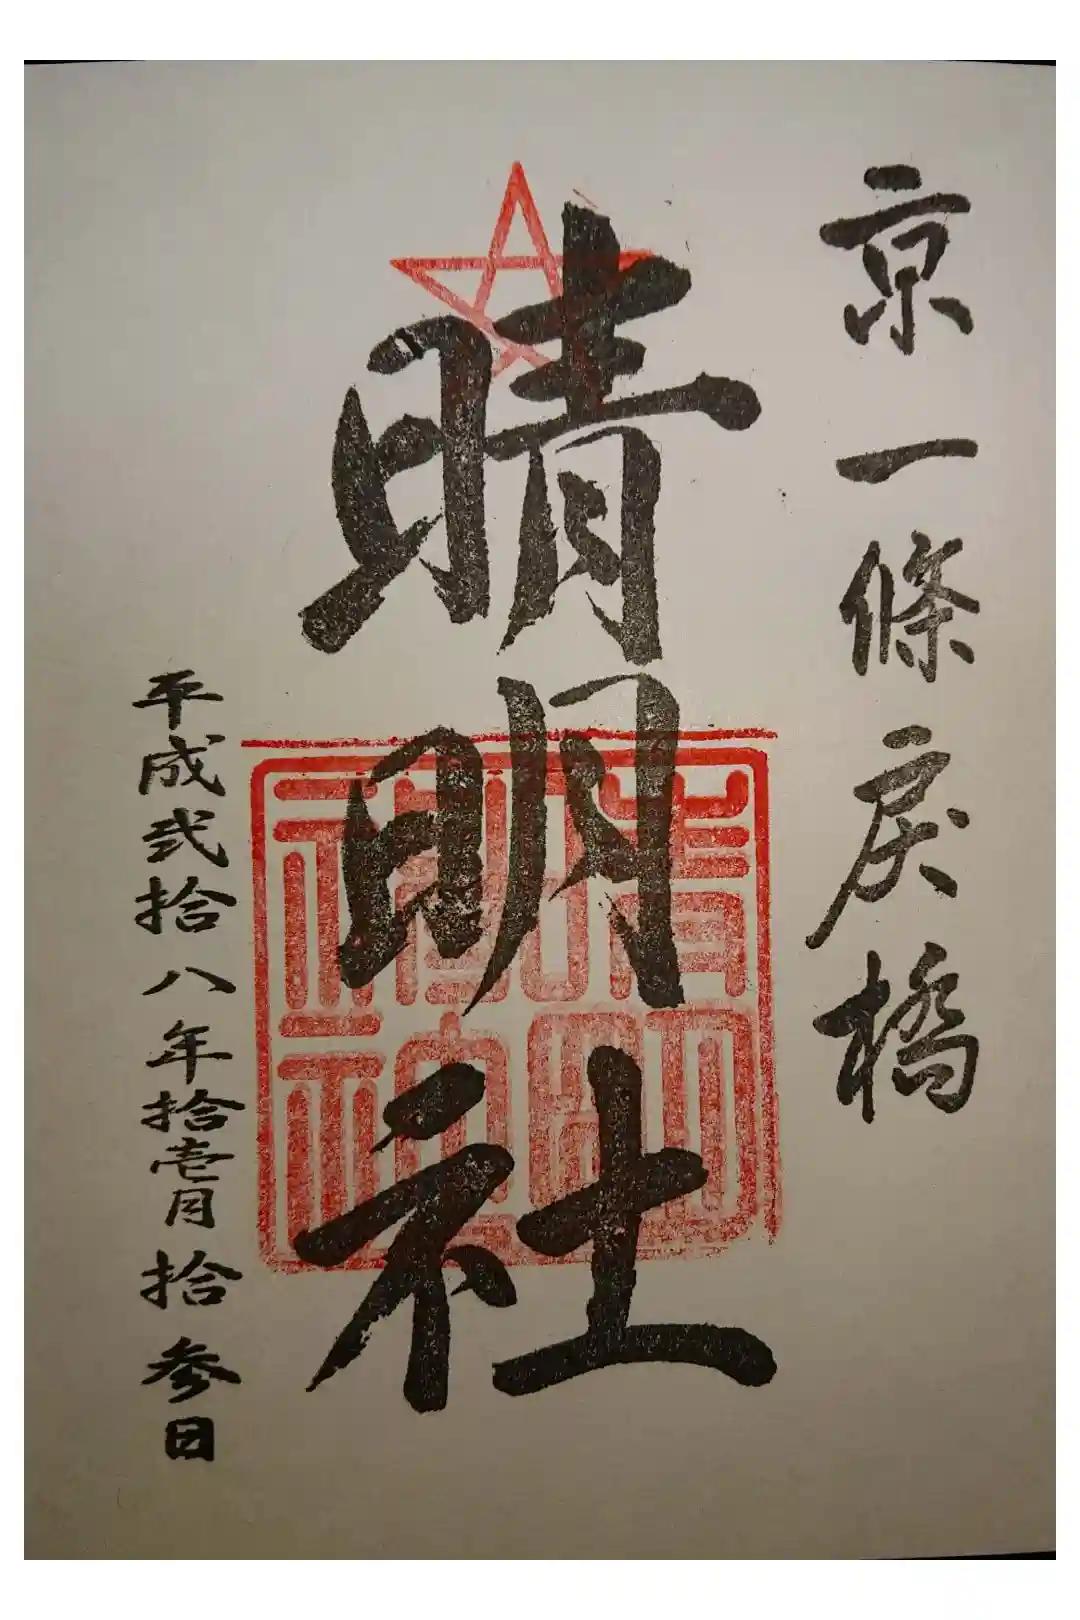 京一條戻橋
晴明社
晴明神社
平成弐拾八年拾壱月拾参日